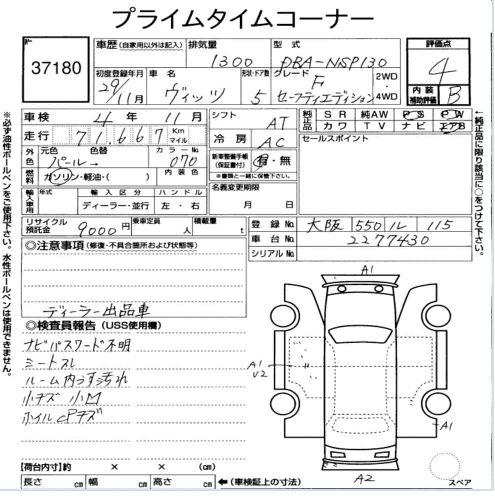 プライムタイムコーナー
37180
車歴 (自家用以外は記入) 排気量 1300 型式 DBA-NSP130 評価点 4
初度登録年月 29年11月 車名 ヴィッツ 形状・ドア数 5 グレード F セーフティエディション 2WD・4WD 内装補助評価 B
車検 4年11月 シフト AT 純正品 SR 純AW PS PW
カワ TV ナビ エアB
走行 71,667 Km マイル 冷房 AC セールスポイント
外色 元色 パール 色替 カラーNo. 070 新車整備手帳(保証書付) 有・無
※書類と一緒に保管下さい。
燃料 ガソリン・軽油・( ) 内装色 名義変更期限
輸入車使用 年式 輸入区分 ディーラー・並行 ハンドル 左・右 月 日
リサイクル預託金 9000円 乗車定員 人 積載量 t 登録No. 大阪 550 ル 115
車台No. 2277430
シリアルNo.
◎注意事項 (修復・不具合箇所および状態等)
ディーラー出品車
◎検査員報告 (USS使用欄)
ナビパスワード不明
ミートスレ
ルーム内うす汚れ
小キズ 小凹
ホイルCPキズ
A1
A1
U2
A1
A2
スペア
【荷台内寸】約 × × (cm)
長さ cm 幅 cm 高さ cm ←(車検証上の寸法)
※必ず油性ボールペンをご使用下さい。水性ボールペンは使用できません。
←純正品に限り該当に○をつけて下さい。